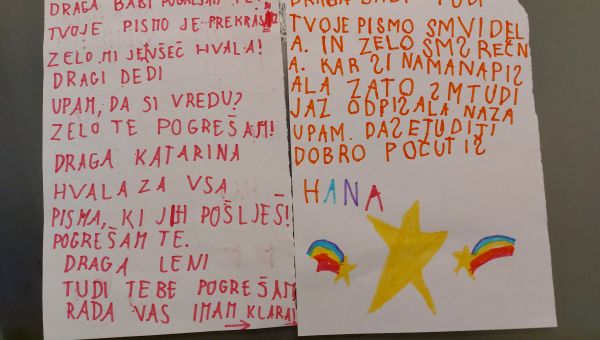 DRAGA BABI POGREŠAM TE!
TVOJE PISMO JE PREKRASNO
ZELO MI JE VŠEČ HVALA!
DRAGI DEDI
UPAM, DA SI VREDU?
ZELO TE POGREŠAM!
DRAGA KATARINA
HVALA ZA VSA
PISMA, KI JIH POŠLJEŠ!
POGREŠAM TE.
DRAGA LENI
TUDI TEBE POGREŠAM
RADA VAS IMAM KLARA!
DRAGA BABI
TVOJE PISMO SM VIDEL
A. IN ZELO SM SREČN
A. KAR SI NAM NAPIS
ALA ZATO SM TUDI
JAZ ODPISALA NAZA
UPAM. DA SE TUDI TI
DOBRO POČUTIS
HANA